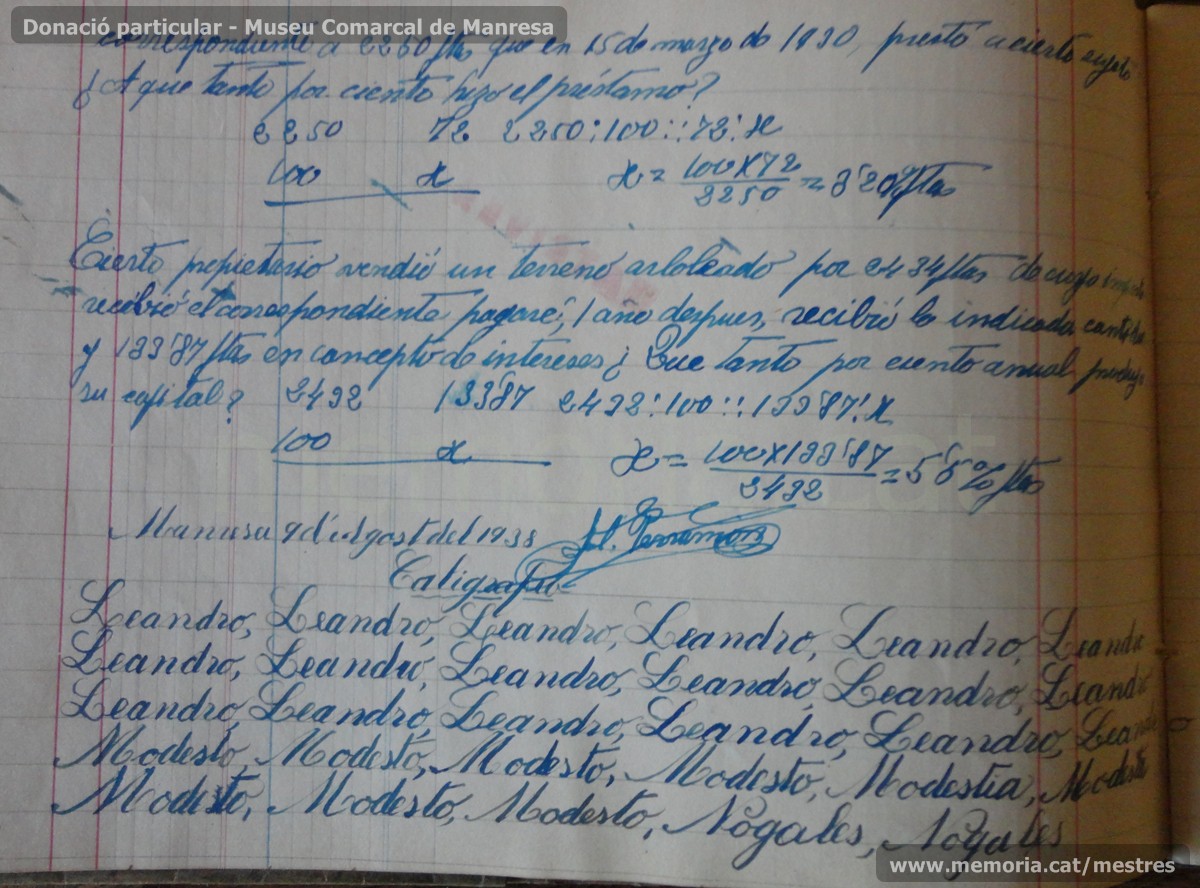 Donació particular - Museu Comarcal de Manresa
correspondiente a 2250 ptas que en 15 de marzo de 1930, prestó a cierto sujeto
¿A que tanto por ciento hizo el préstamo?
2250 72 2250:100::72:x
100 x x = 100x72 / 2250 = 3'20% ptas
Cierto propietario vendió un terreno arboleado por 2434 ptas de cuyo importe
recibió el correspondiente pagaré, 1 año despues, recibió la indicada cantidad
y 133'87 ptas en concepto de intereses ¿Que tanto por ciento anual produjo
su capital? 2432 133'87 2432:100::133'87:x
100 x x = 100x133'87 / 2432 = 5'5% ptas
Manresa 9 d'Agost del 1938 Perramon
Caligrafia
Leandro, Leandro, Leandro, Leandro, Leandro, Leandro
Leandro, Leandro, Leandro, Leandro, Leandro, Leandro
Leandro, Leandro, Leandro, Leandro, Leandro, Leandro
Modesto, Modesto, Modesto, Modesto, Modestia, Modesto
Modesto, Modesto, Modesto, Nogales, Nogales
www.memoria.cat/mestres